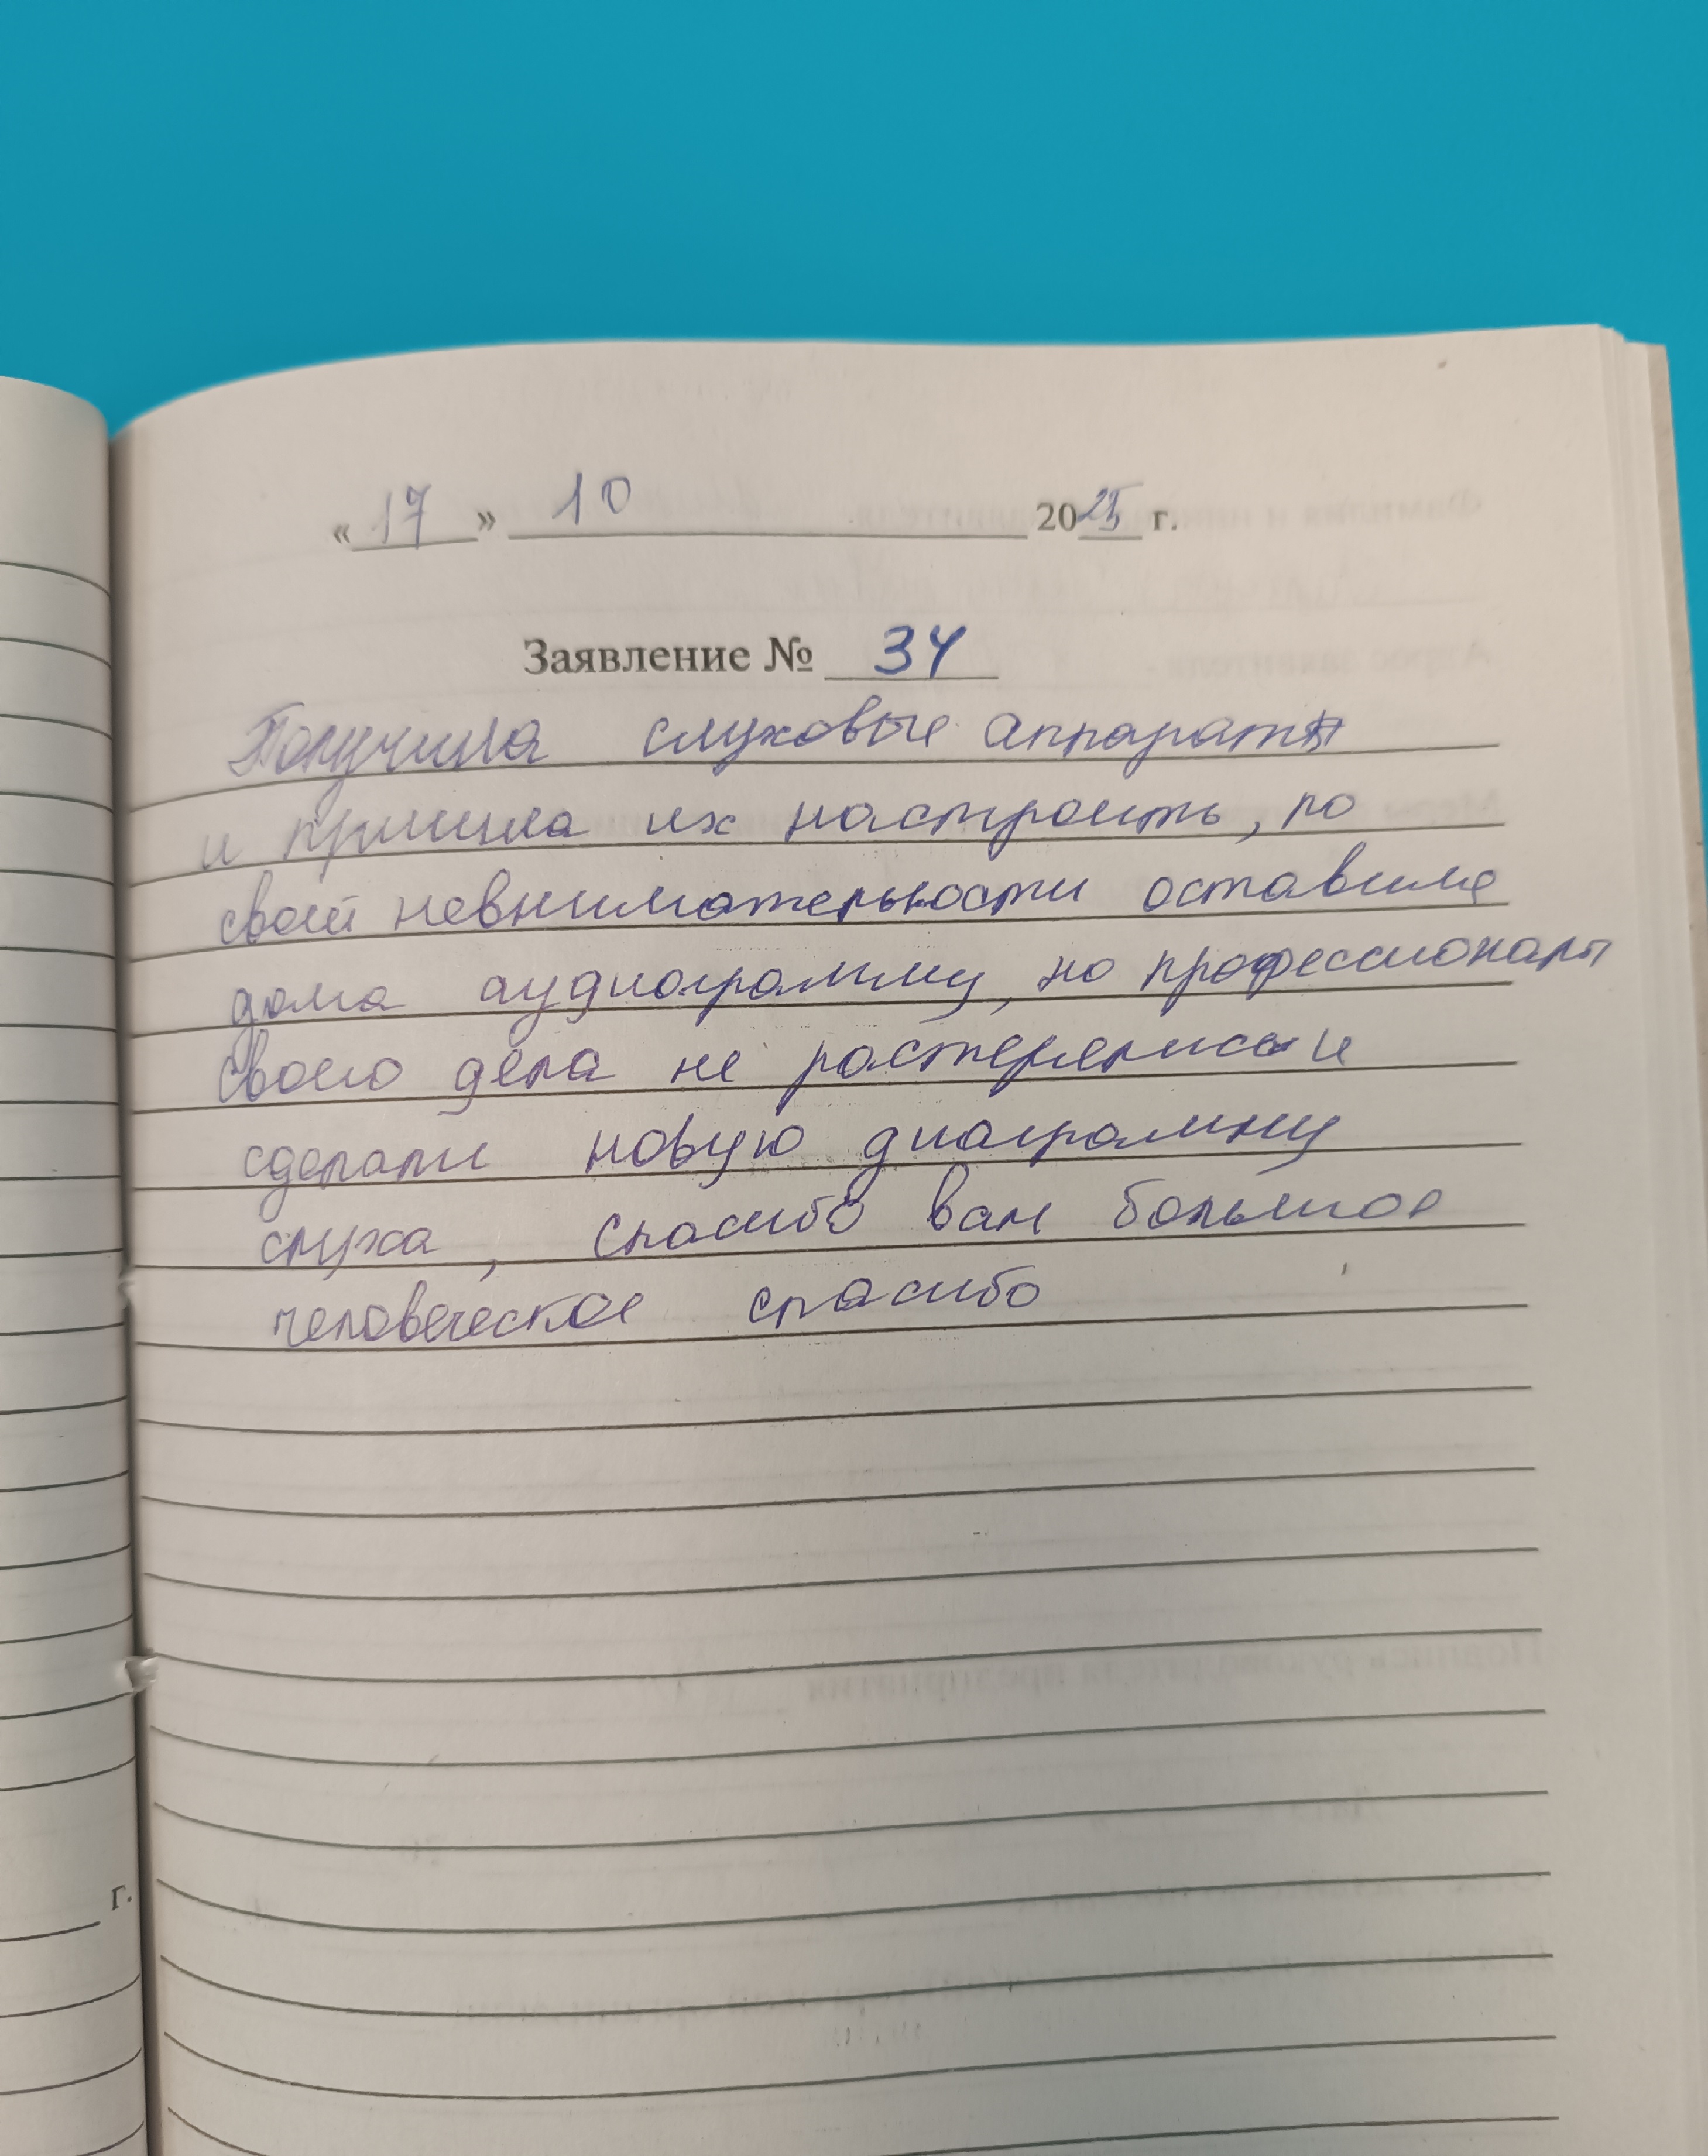 « 17 » 10 2025 г.
Заявление № 34
Получила слуховые аппараты
и пришла их настроить, по
своей невнимательности оставила
дома аудиограмму, но профессионалы
своего дела не растерялись и
сделали новую диаграмму
слуха, спасибо вам большое
человеческое спасибо
г.